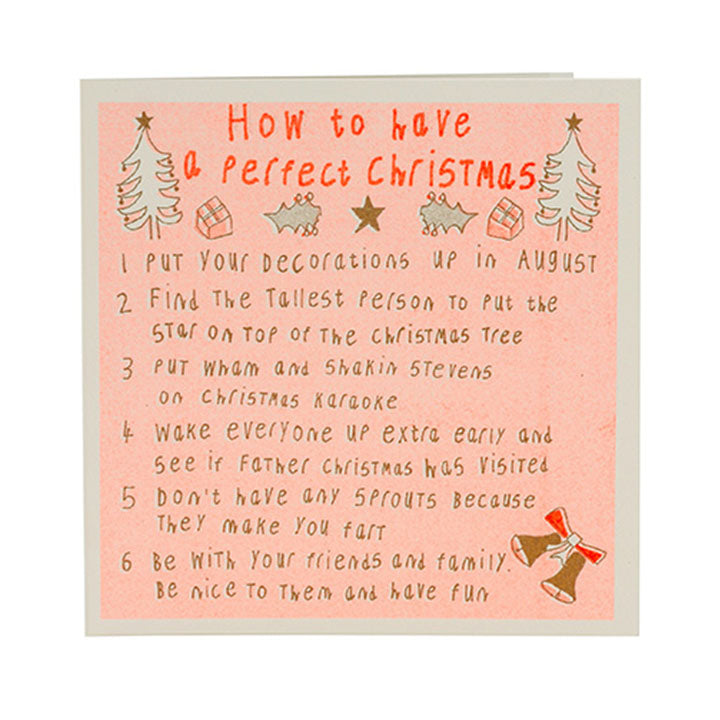 How to have
a perfect Christmas
1 Put your decorations up in August
2 Find the tallest person to put the
star on top of the Christmas tree
3 Put Wham and Shakin Stevens
on Christmas karaoke
4 Wake everyone up extra early and
see if Father Christmas has visited
5 Don't have any sprouts because
they make you fart
6 Be with your friends and family.
Be nice to them and have fun